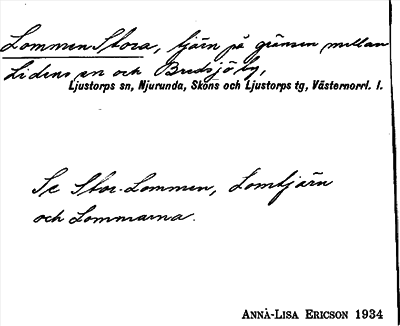 Lommen Stora, tjärn på gränsen mellan
Lidens sn och Bredsjö by,
Ljustorps sn, Njurunda, Sköns och Ljustorps tg, Västernorrl. l.
Se Stor-Lommen, Lomtjärn
och Lommarna.
ANNA-LISA ERICSON 1934